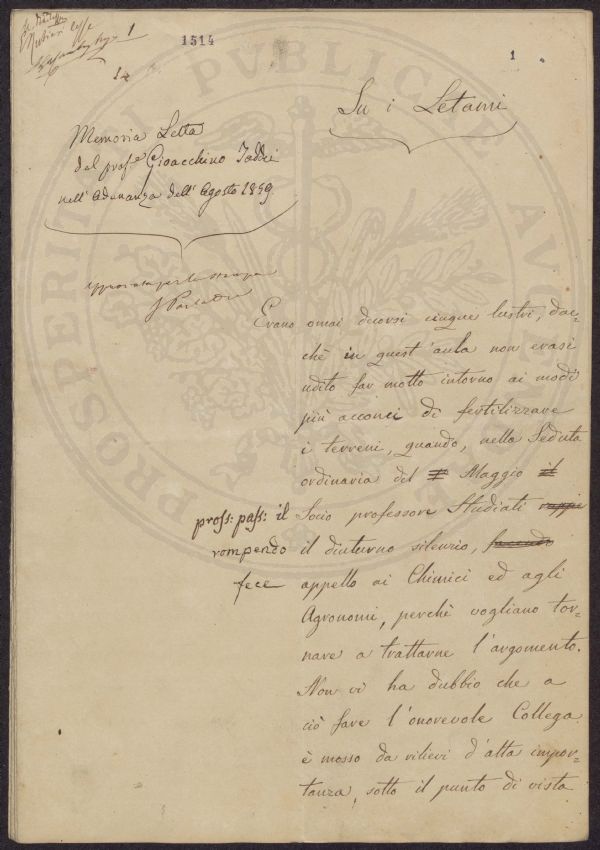 1
1514
1
Su i Letami
Memoria Letta
dal prof.e Gioacchino Taddei
nell'Adunanza dell'Agosto 1859.
approvata per la stampa
Erano omai decorsi cinque lustri, dac-
chè in quest'aula non erasi
udito far motto intorno ai modi
più acconci di fertilizzare
i terreni, quando, nella Seduta
ordinaria del Maggio il
pross: pass: il Socio professore Studiati
rompendo il diuturno silenzio, facendo
fece appello ai Chimici ed agli
Agronomi, perchè vogliano tor-
nare a trattarne l'argomento.
Non vi ha dubbio che a
ciò fare l'onorevole Collega
è mosso da rilievi d'alta impor-
tanza, sotto il punto di vista
PROSPERITATI PVBLICAE AVGENDAE